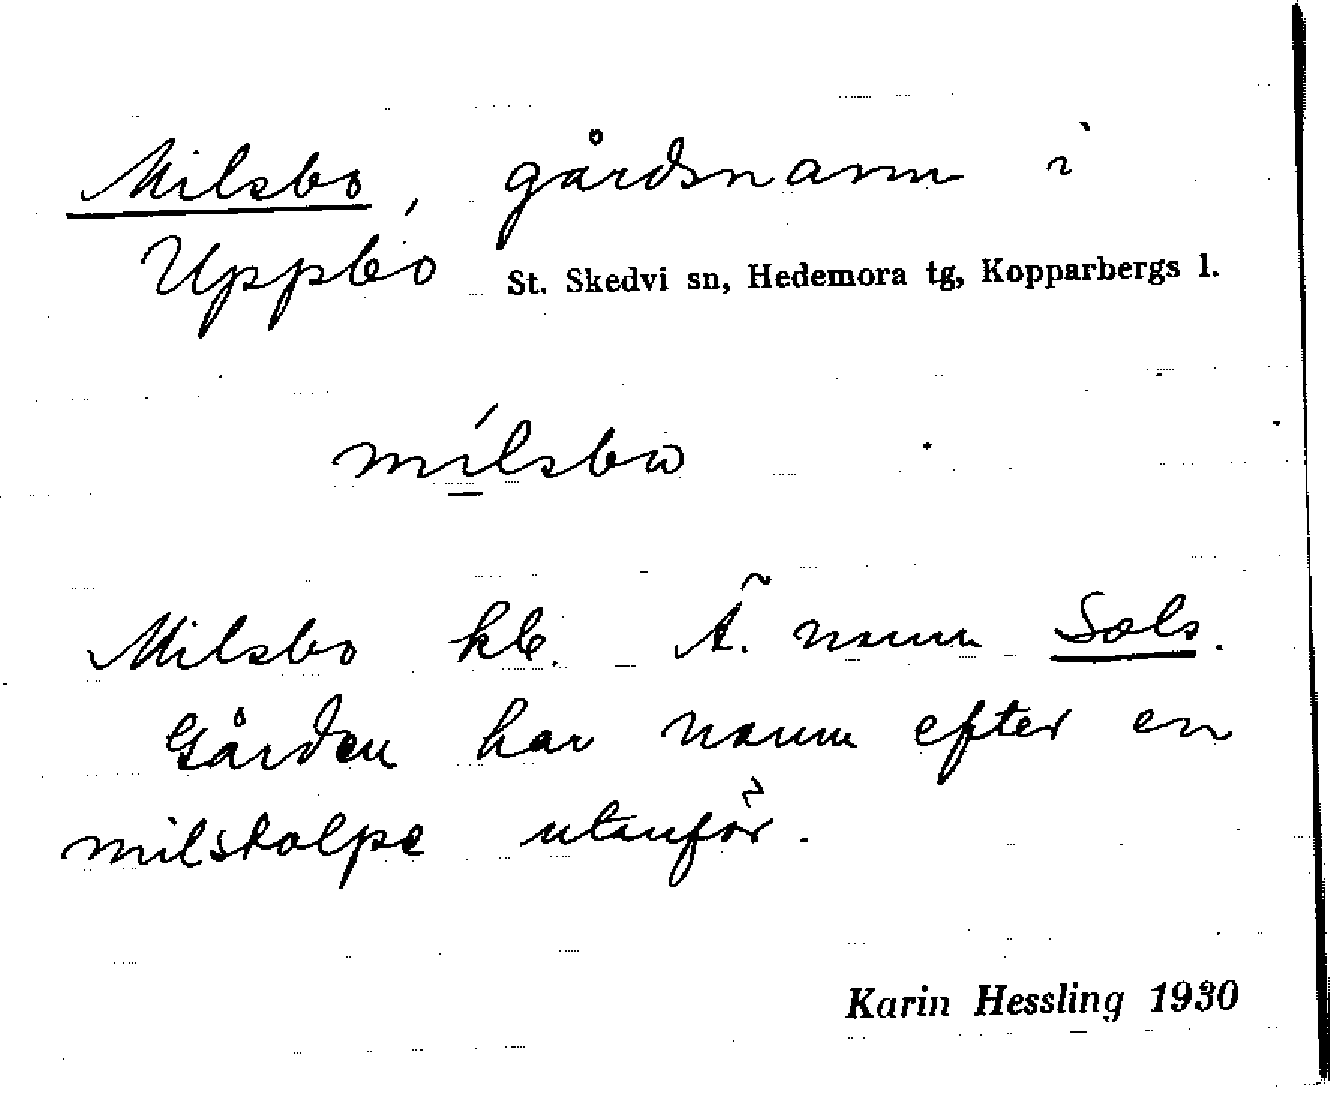 Milsbo, gårdsnamn i
Uppbo St. Skedvi sn, Hedemora tg, Kopparbergs l.
mílsbω
Milsbo kb. Ä. namn Sols.
Gården har namn efter en
milstolpe utanför.
Karin Hessling 1930